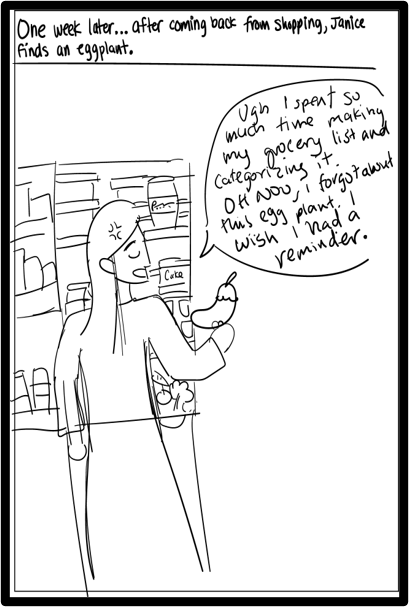 One week later... after coming back from shopping, Janice
finds an eggplant.
Ugh I spent so
much time making
my grocery list and
categorizing it.
Oh Nooo, I forgot about
this egg plant. I
wish I had a
reminder.
Cake